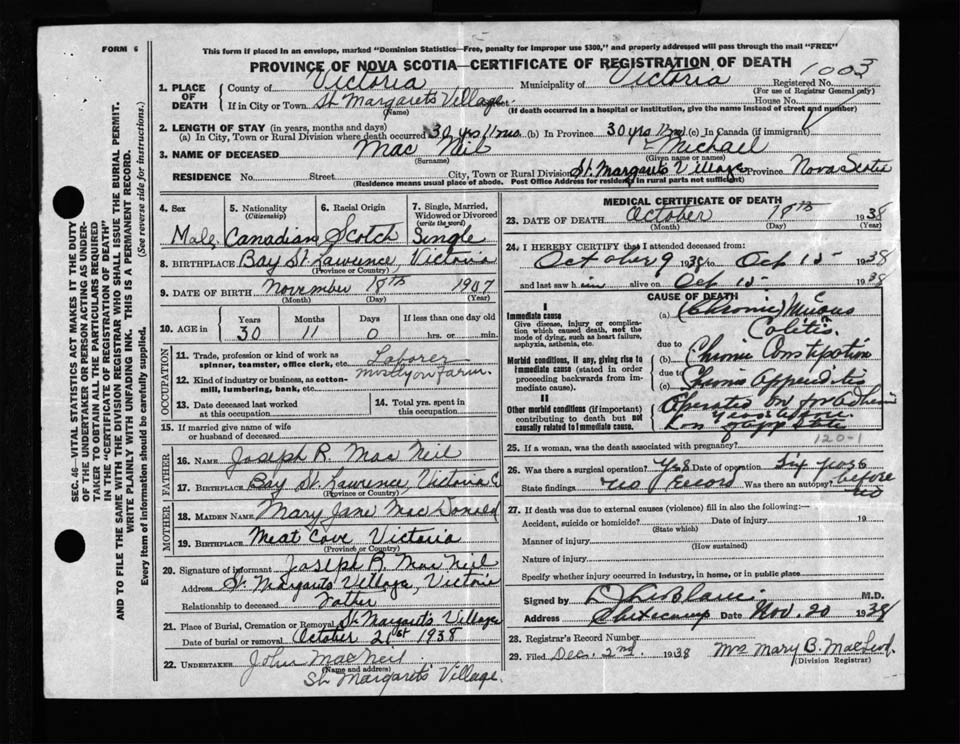 FORM 6
This form if placed in an envelope, marked "Dominion Statistics—Free, penalty for improper use $300," and properly addressed will pass through the mail "FREE"
PROVINCE OF NOVA SCOTIA—CERTIFICATE OF REGISTRATION OF DEATH
1. PLACE OF DEATH
County of Victoria Municipality of Victoria Registered No. 1003
(For use of Registrar General only)
If in City or Town St. Margarets Village Street House No.
(Name) (If death occurred in a hospital or institution, give the name instead of street and number)
2. LENGTH OF STAY (in years, months and days)
(a) In City, Town or Rural Division where death occurred 30 yrs 11 mo. (b) In Province 30 yrs 11 mo. (c) In Canada (if immigrant)
3. NAME OF DECEASED Mac Neil Michael
(Surname) (Given name or names)
RESIDENCE No. Street City, Town or Rural Division St. Margarets Village Province Nova Scotia
(Residence means usual place of abode. Post Office Address for residency in rural parts not sufficient)
4. Sex
5. Nationality (Citizenship)
6. Racial Origin
7. Single, Married, Widowed or Divorced (write the word)
Male Canadian Scotch Single
8. BIRTHPLACE Bay St. Lawrence, Victoria
(Province or Country)
9. DATE OF BIRTH November 18th 1907
(Month) (Day) (Year)
10. AGE in Years Months Days If less than one day old
30 11 0 hrs. or min.
OCCUPATION
11. Trade, profession or kind of work as spinner, teamster, office clerk, etc. Laborer
12. Kind of industry or business, as cotton-mill, lumbering, bank, etc. mostly on Farm.
13. Date deceased last worked at this occupation
14. Total yrs. spent in this occupation
15. If married give name of wife or husband of deceased
FATHER
16. NAME Joseph R. Mac Neil
17. BIRTHPLACE Bay St. Lawrence, Victoria C
(Province or Country)
MOTHER
18. MAIDEN NAME Mary Jane Mac Donald
19. BIRTHPLACE Meat Cove Victoria
(Province or Country)
20. Signature of informant Joseph R. Mac Neil
Address St. Margarets Village, Victoria
Relationship to deceased Father
21. Place of Burial, Cremation or Removal St. Margarets Village
Date of burial or removal October 21st 1938
22. UNDERTAKER John MacNeil
(Name and address)
St. Margarets Village.
MEDICAL CERTIFICATE OF DEATH
23. DATE OF DEATH October 18th 1938
(Month) (Day) (Year)
24. I HEREBY CERTIFY that I attended deceased from:
October 9 1938 to Oct 15 1938
and last saw him alive on Oct 15 1938
CAUSE OF DEATH
I
Immediate cause
Give disease, injury or complication which caused death, not the mode of dying, such as heart failure, asphyxia, asthenia, etc.
(a) (Chronic) Mucous Colitis
due to
Morbid conditions, if any, giving rise to immediate cause (stated in order proceeding backwards from immediate cause).
(b) Chronic Constipation
due to
(c) Chronic Appendicitis
II
Other morbid conditions (if important) contributing to death but not causally related to immediate cause.
Operated
120-1
25. If a woman, was the death associated with pregnancy?
26. Was there a surgical operation? Yes Date of operation Six years before
State findings no Record Was there an autopsy? no
27. If death was due to external causes (violence) fill in also the following:—
Accident, suicide or homicide? Date of injury 19
(State which)
Manner of injury
(How sustained)
Nature of injury
Specify whether injury occurred in industry, in home, or in public place
Signed by D. LeBlanc M.D.
Address Cheticamp Date Nov. 20 1938
28. Registrar's Record Number
29. Filed Dec. 2nd 1938 Mrs Mary B. MacLeod
(Division Registrar)
SEC. 46—VITAL STATISTICS ACT MAKES IT THE DUTY
OF THE UNDERTAKER OR PERSON ACTING AS UNDERTAKER TO OBTAIN ALL THE PARTICULARS REQUIRED
IN THE "CERTIFICATE OF REGISTRATION OF DEATH"
AND TO FILE THE SAME WITH THE DIVISION REGISTRAR WHO SHALL ISSUE THE BURIAL PERMIT.
WRITE PLAINLY WITH UNFADING INK. THIS IS A PERMANENT RECORD.
Every item of information should be carefully supplied. (See reverse side for instructions.)